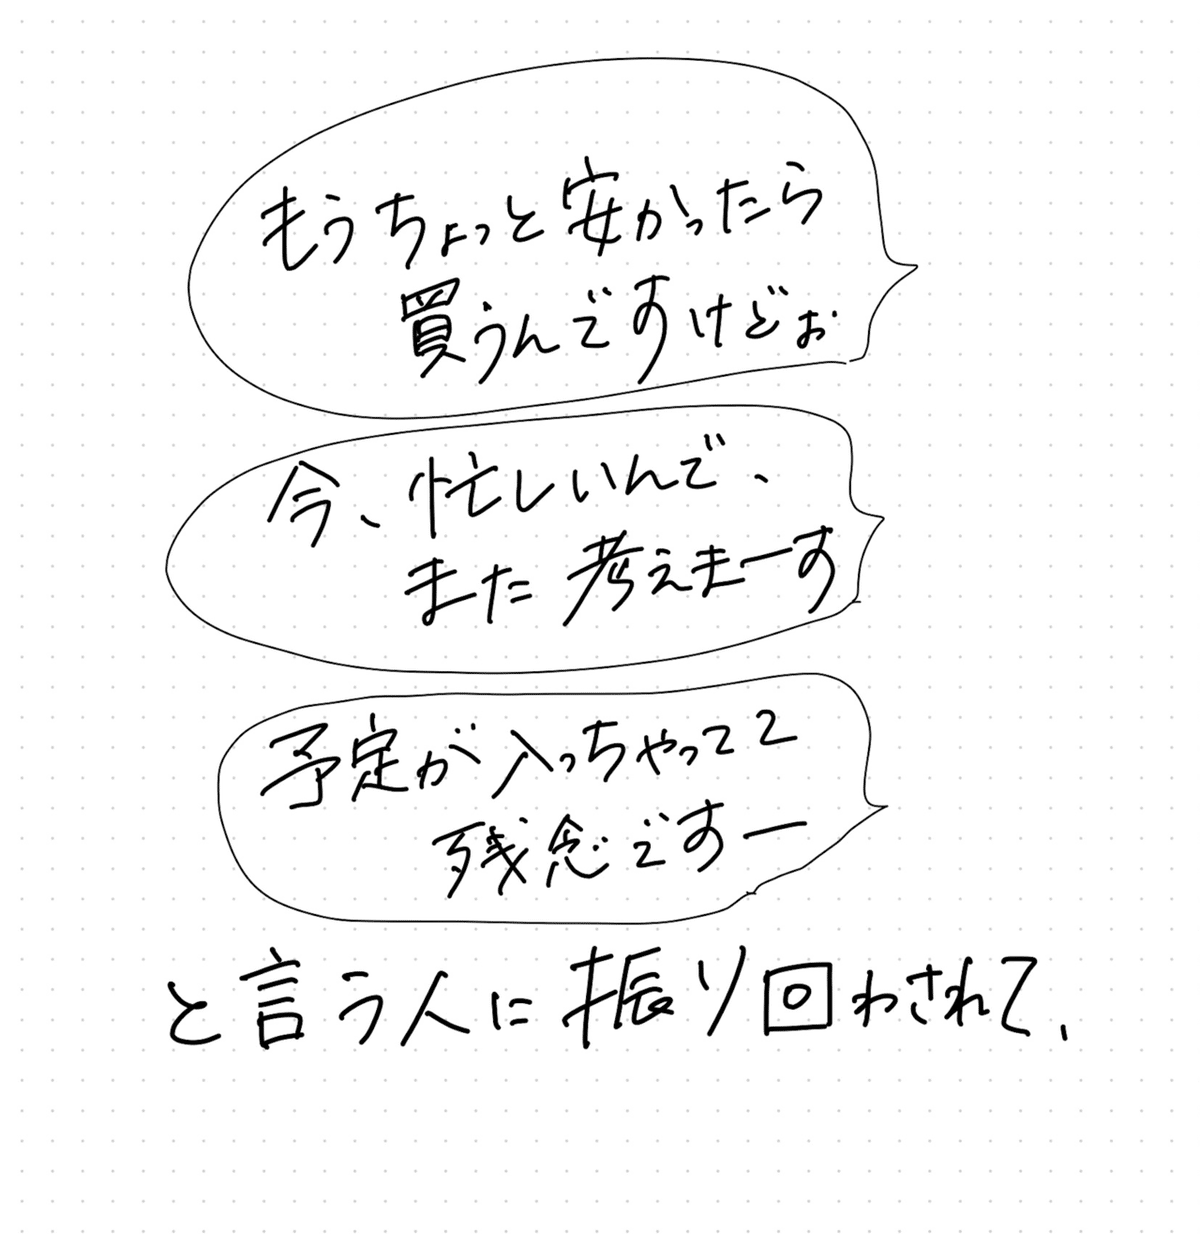 もうちょっと安かったら
買うんですけどぉ
今、忙しいんで、
また考えまーす
予定が入っちゃってて
残念ですー
と言う人に振り回わされて、